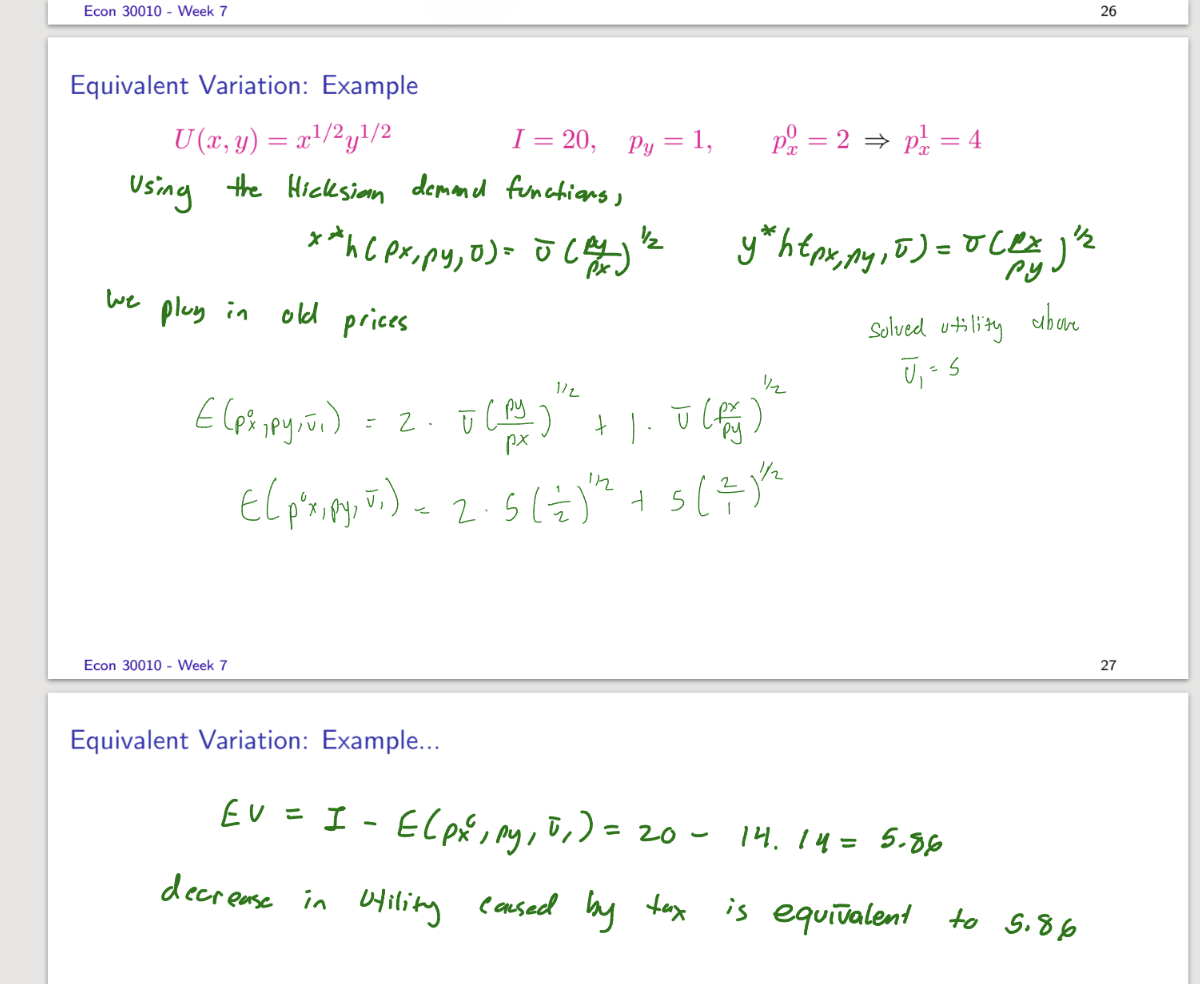 Econ 30010 - Week 7 26
Equivalent Variation: Example
U(x, y) = x^{1/2}y^{1/2} I = 20, p_y = 1, p_x^0 = 2 ⇒ p_x^1 = 4
Using the Hicksian demand functions,
x*h(px,py,Ū) = Ū(py/px)^{1/2} y*h(px,py,Ū) = Ū(px/py)^{1/2}
We plug in old prices
solved utility above
Ū₁ = 5
E(p⁰x,py,Ū₁) = 2 · Ū(py/px)^{1/2} + 1 · Ū(px/py)^{1/2}
E(p⁰x,py,Ū₁) = 2 · 5(1/2)^{1/2} + 5(2/1)^{1/2}
Econ 30010 - Week 7 27
Equivalent Variation: Example...
EV = I - E(px⁰, py, Ū₁) = 20 - 14.14 = 5.86
decrease in utility caused by tax is equivalent to 5.86